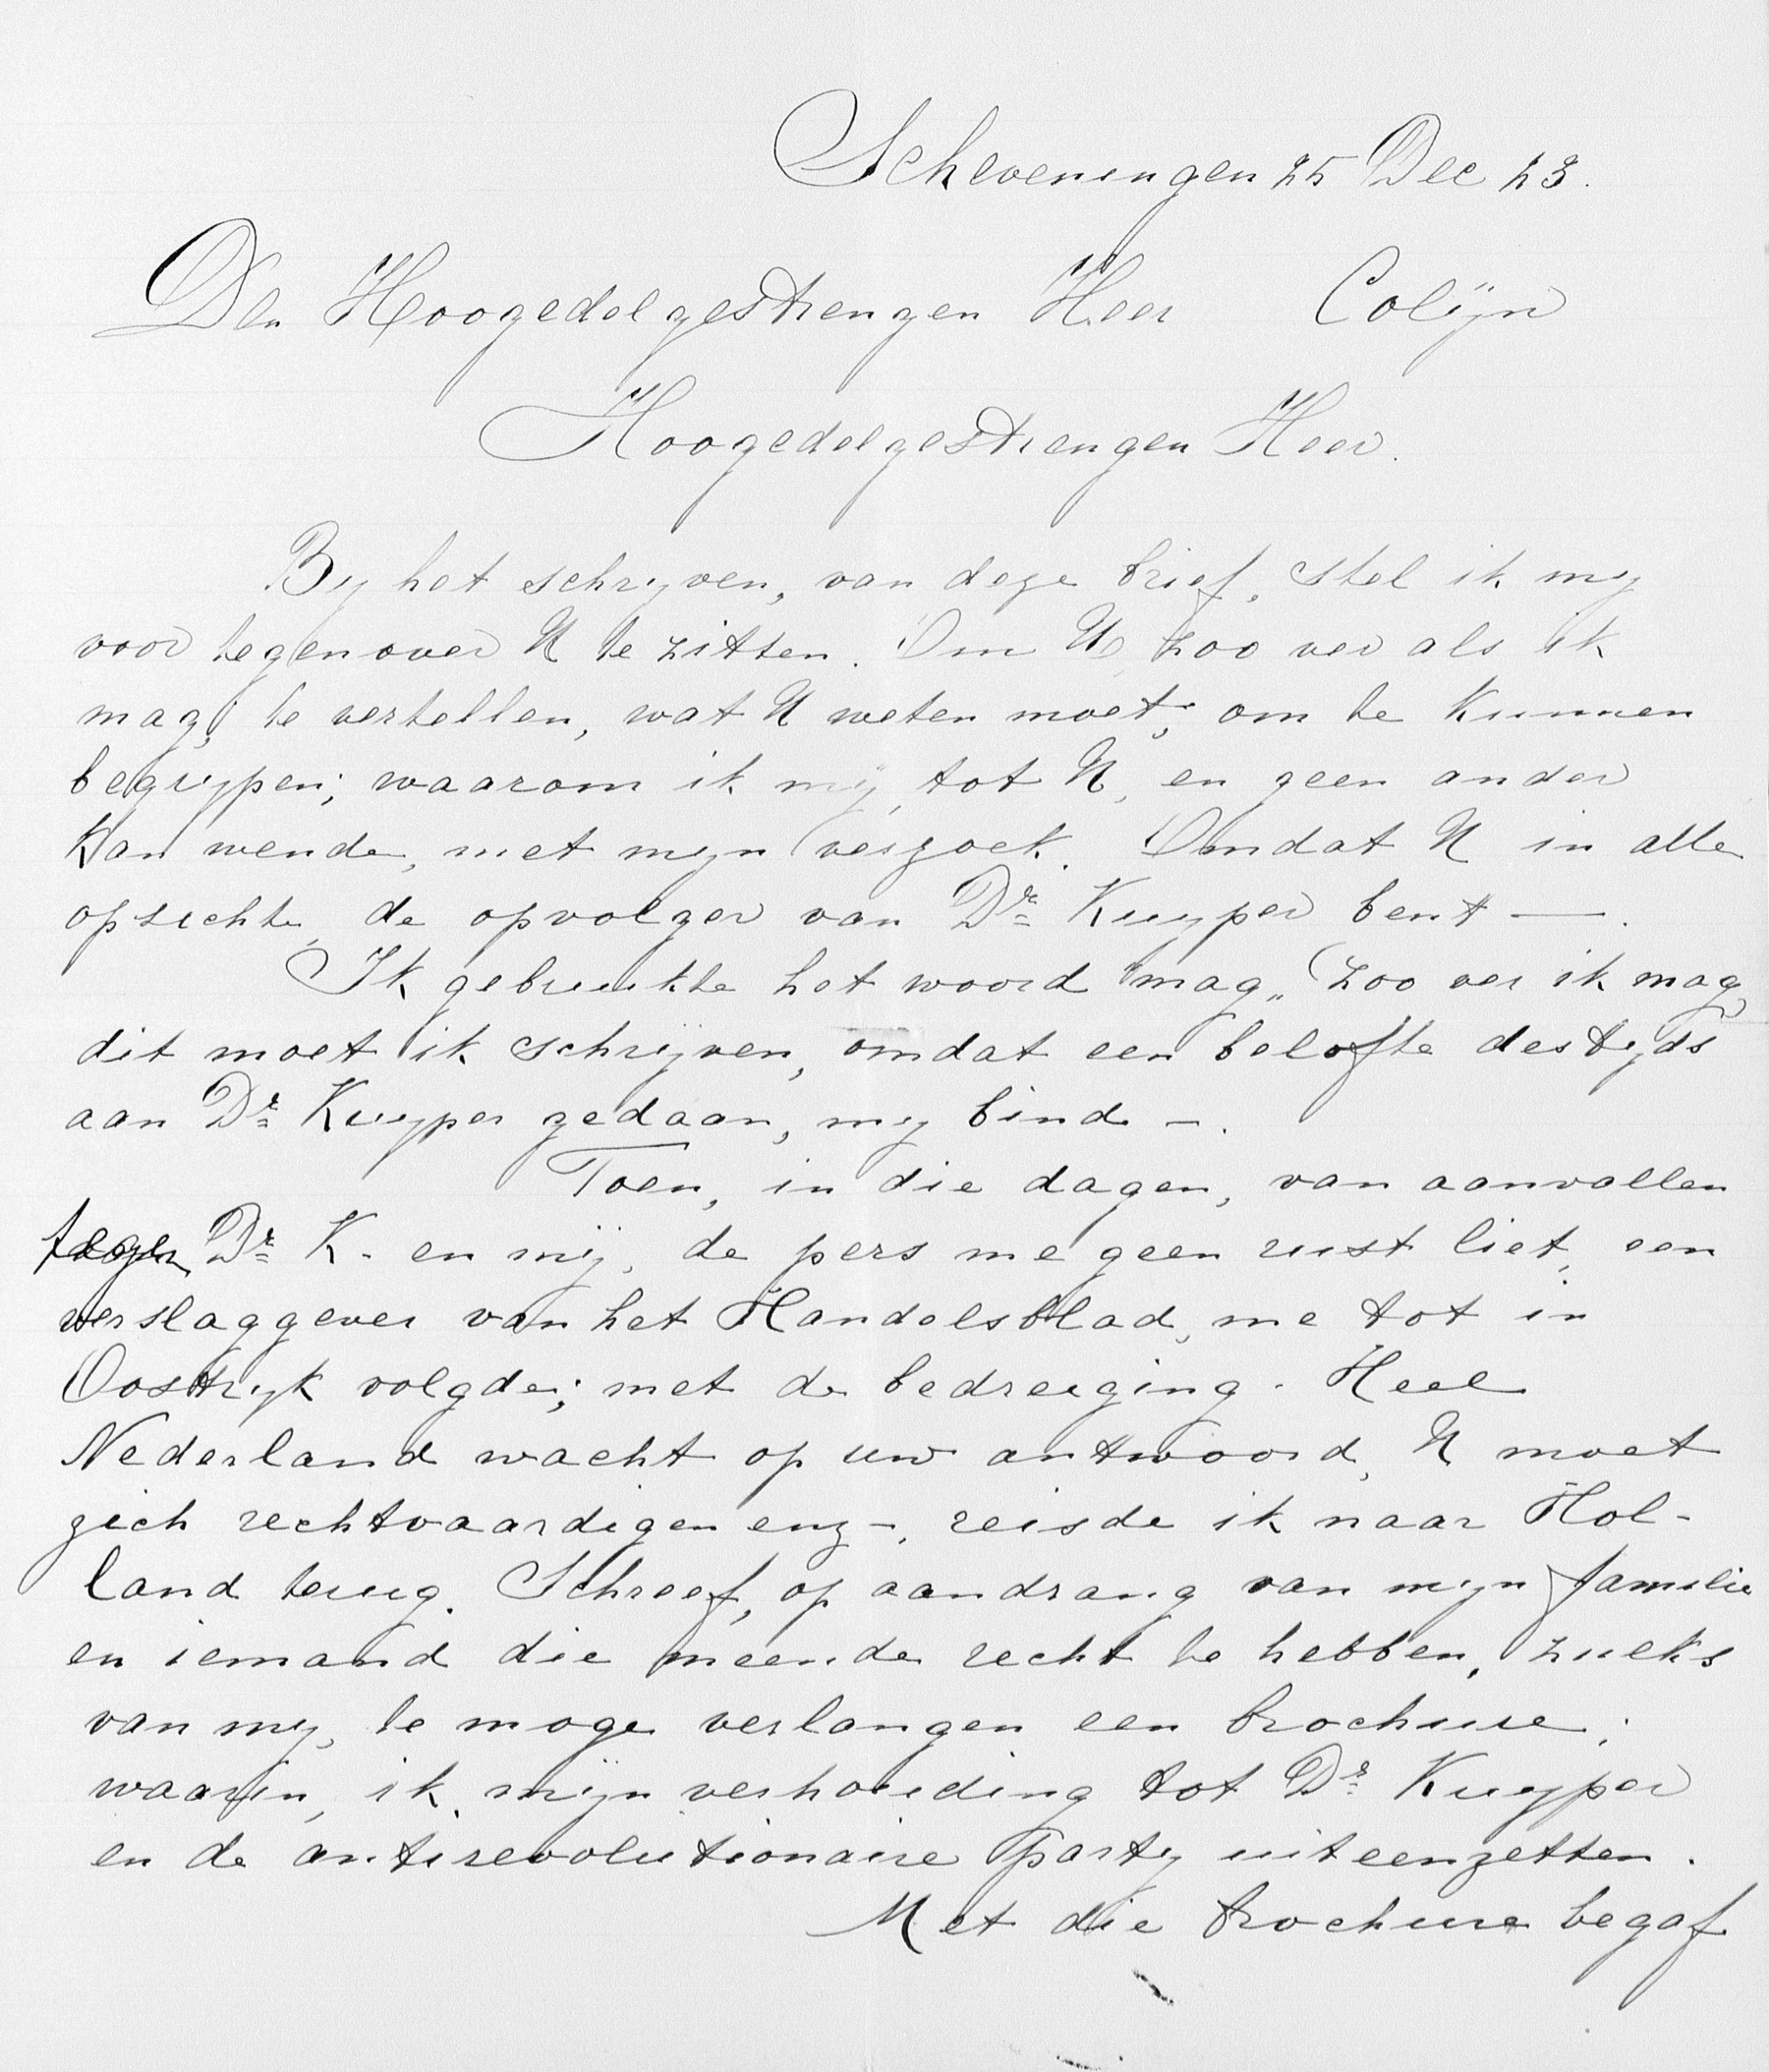 Scheveningen 25 Dec 23.
Den Hoogedelgestrengen Heer Colijn
Hoogedelgestrengen Heer.
By het schryven, van deze brief, stel ik my
voor tegenover U te zitten. Om U, zoo ver als ik
mag, te vertellen, wat U weten moet, om te kunnen
begrypen; waarom ik mij, tot U, en geen ander
kan wende, met myn verzoek. Omdat U in alle
opsichte, de opvolger van Dr Kuyper bent —.
Ik gebruikte het woord "mag" (zoo ver ik mag)
dit moet ik schrijven, omdat een belofte destyds
aan Dr Kuyper gedaan, my bind —.
Toen, in die dagen, van aanvallen
tegen Dr K. en mij, de pers me geen rust liet, een
verslaggever van het Handelsblad, me tot in
Oostryk volgde; met de bedreiging. Heel
Nederland wacht op uw antwoord, U moet
zich rechtvaardigen enz —, reisde ik naar Hol-
land terug. Schreef, op aandrang van myn familie
en iemand die meende recht te hebben, zulks
van my, te moge verlangen een brochure;
waarin, ik, mijn verhouding tot Dr Kuyper
en de antirevolutionaire party uiteenzetten.
Met die brochure begaf